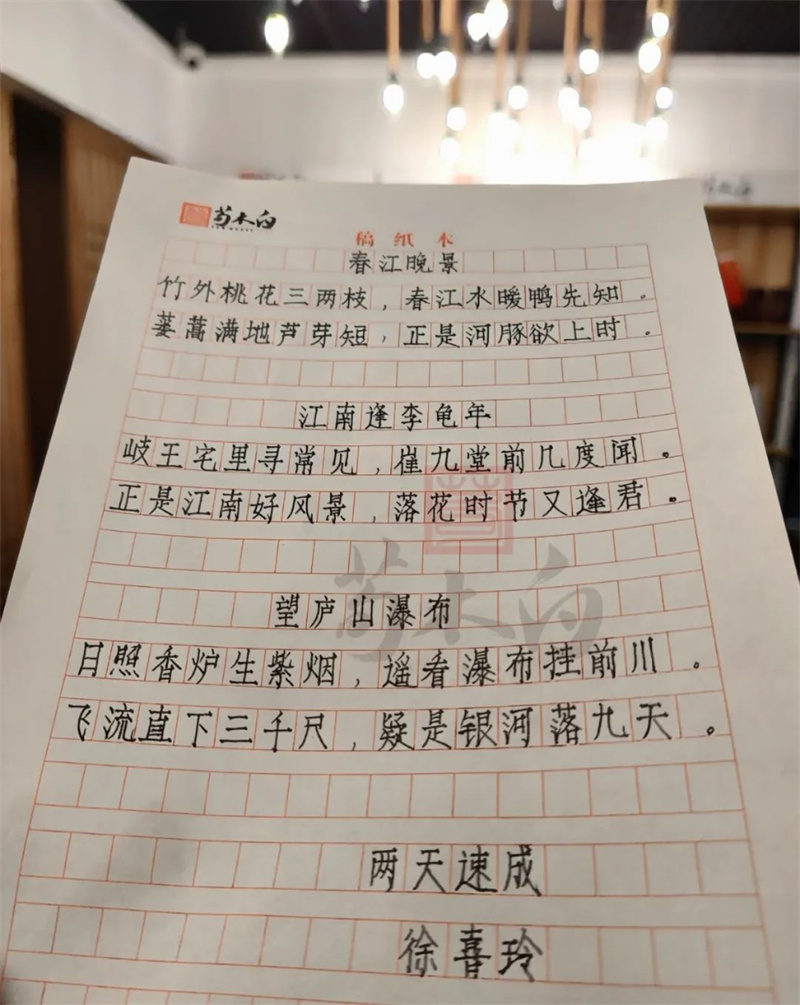 苟木白
稿纸本
春江晚景
竹外桃花三两枝，春江水暖鸭先知。
蒌蒿满地芦芽短，正是河豚欲上时。
江南逢李龟年
岐王宅里寻常见，崔九堂前几度闻。
正是江南好风景，落花时节又逢君。
望庐山瀑布
日照香炉生紫烟，遥看瀑布挂前川。
飞流直下三千尺，疑是银河落九天。
两天速成
徐喜玲